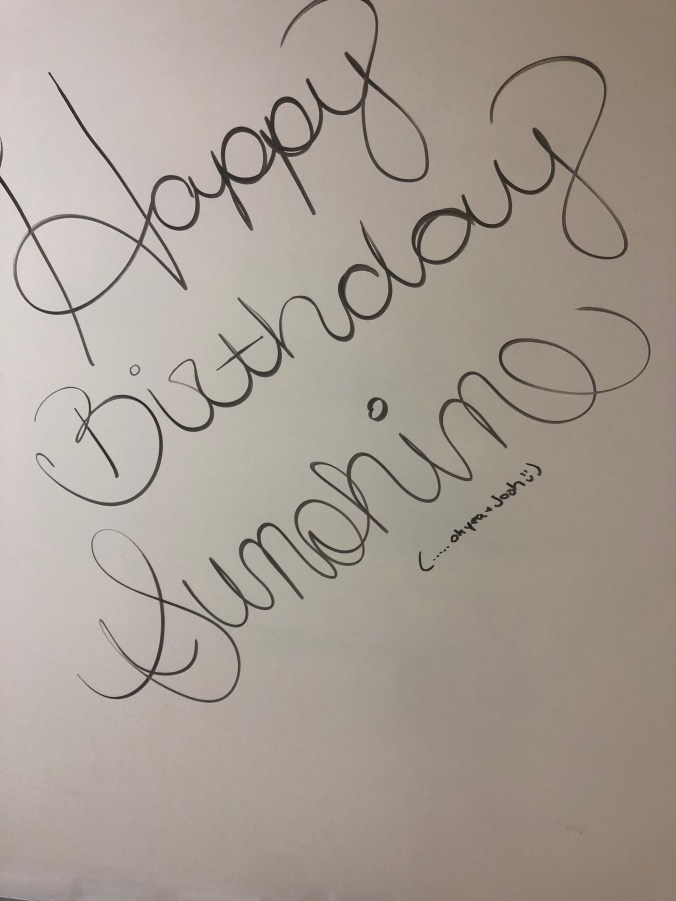 Happy
Birthday
Sunshine
(...... oh yea + Josh :))